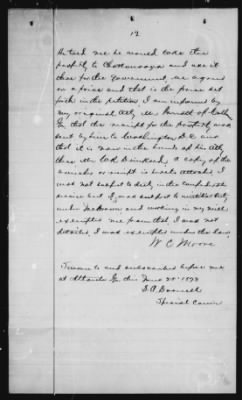 12
He told me he would take the
property to Chattanooga and use it
there for the Government, we agreed
on a price and that is the price set
forth in the petition, I am informed by
my original Atty Mr of
Ga that the receipt for the property was
sent by him to Washington D.C. and
that it is now in the hands of his Atty
there Mr a copy of the
or receipt is hereto attached I
was not in the Confederate
service but I was subject to
under and working in my mill
exempted me from that I was not
detailed, I was exempted under the law,
W C Moore
Sworn to and subscribed before me
at Atlanta Ga this June 1873
Special Comr